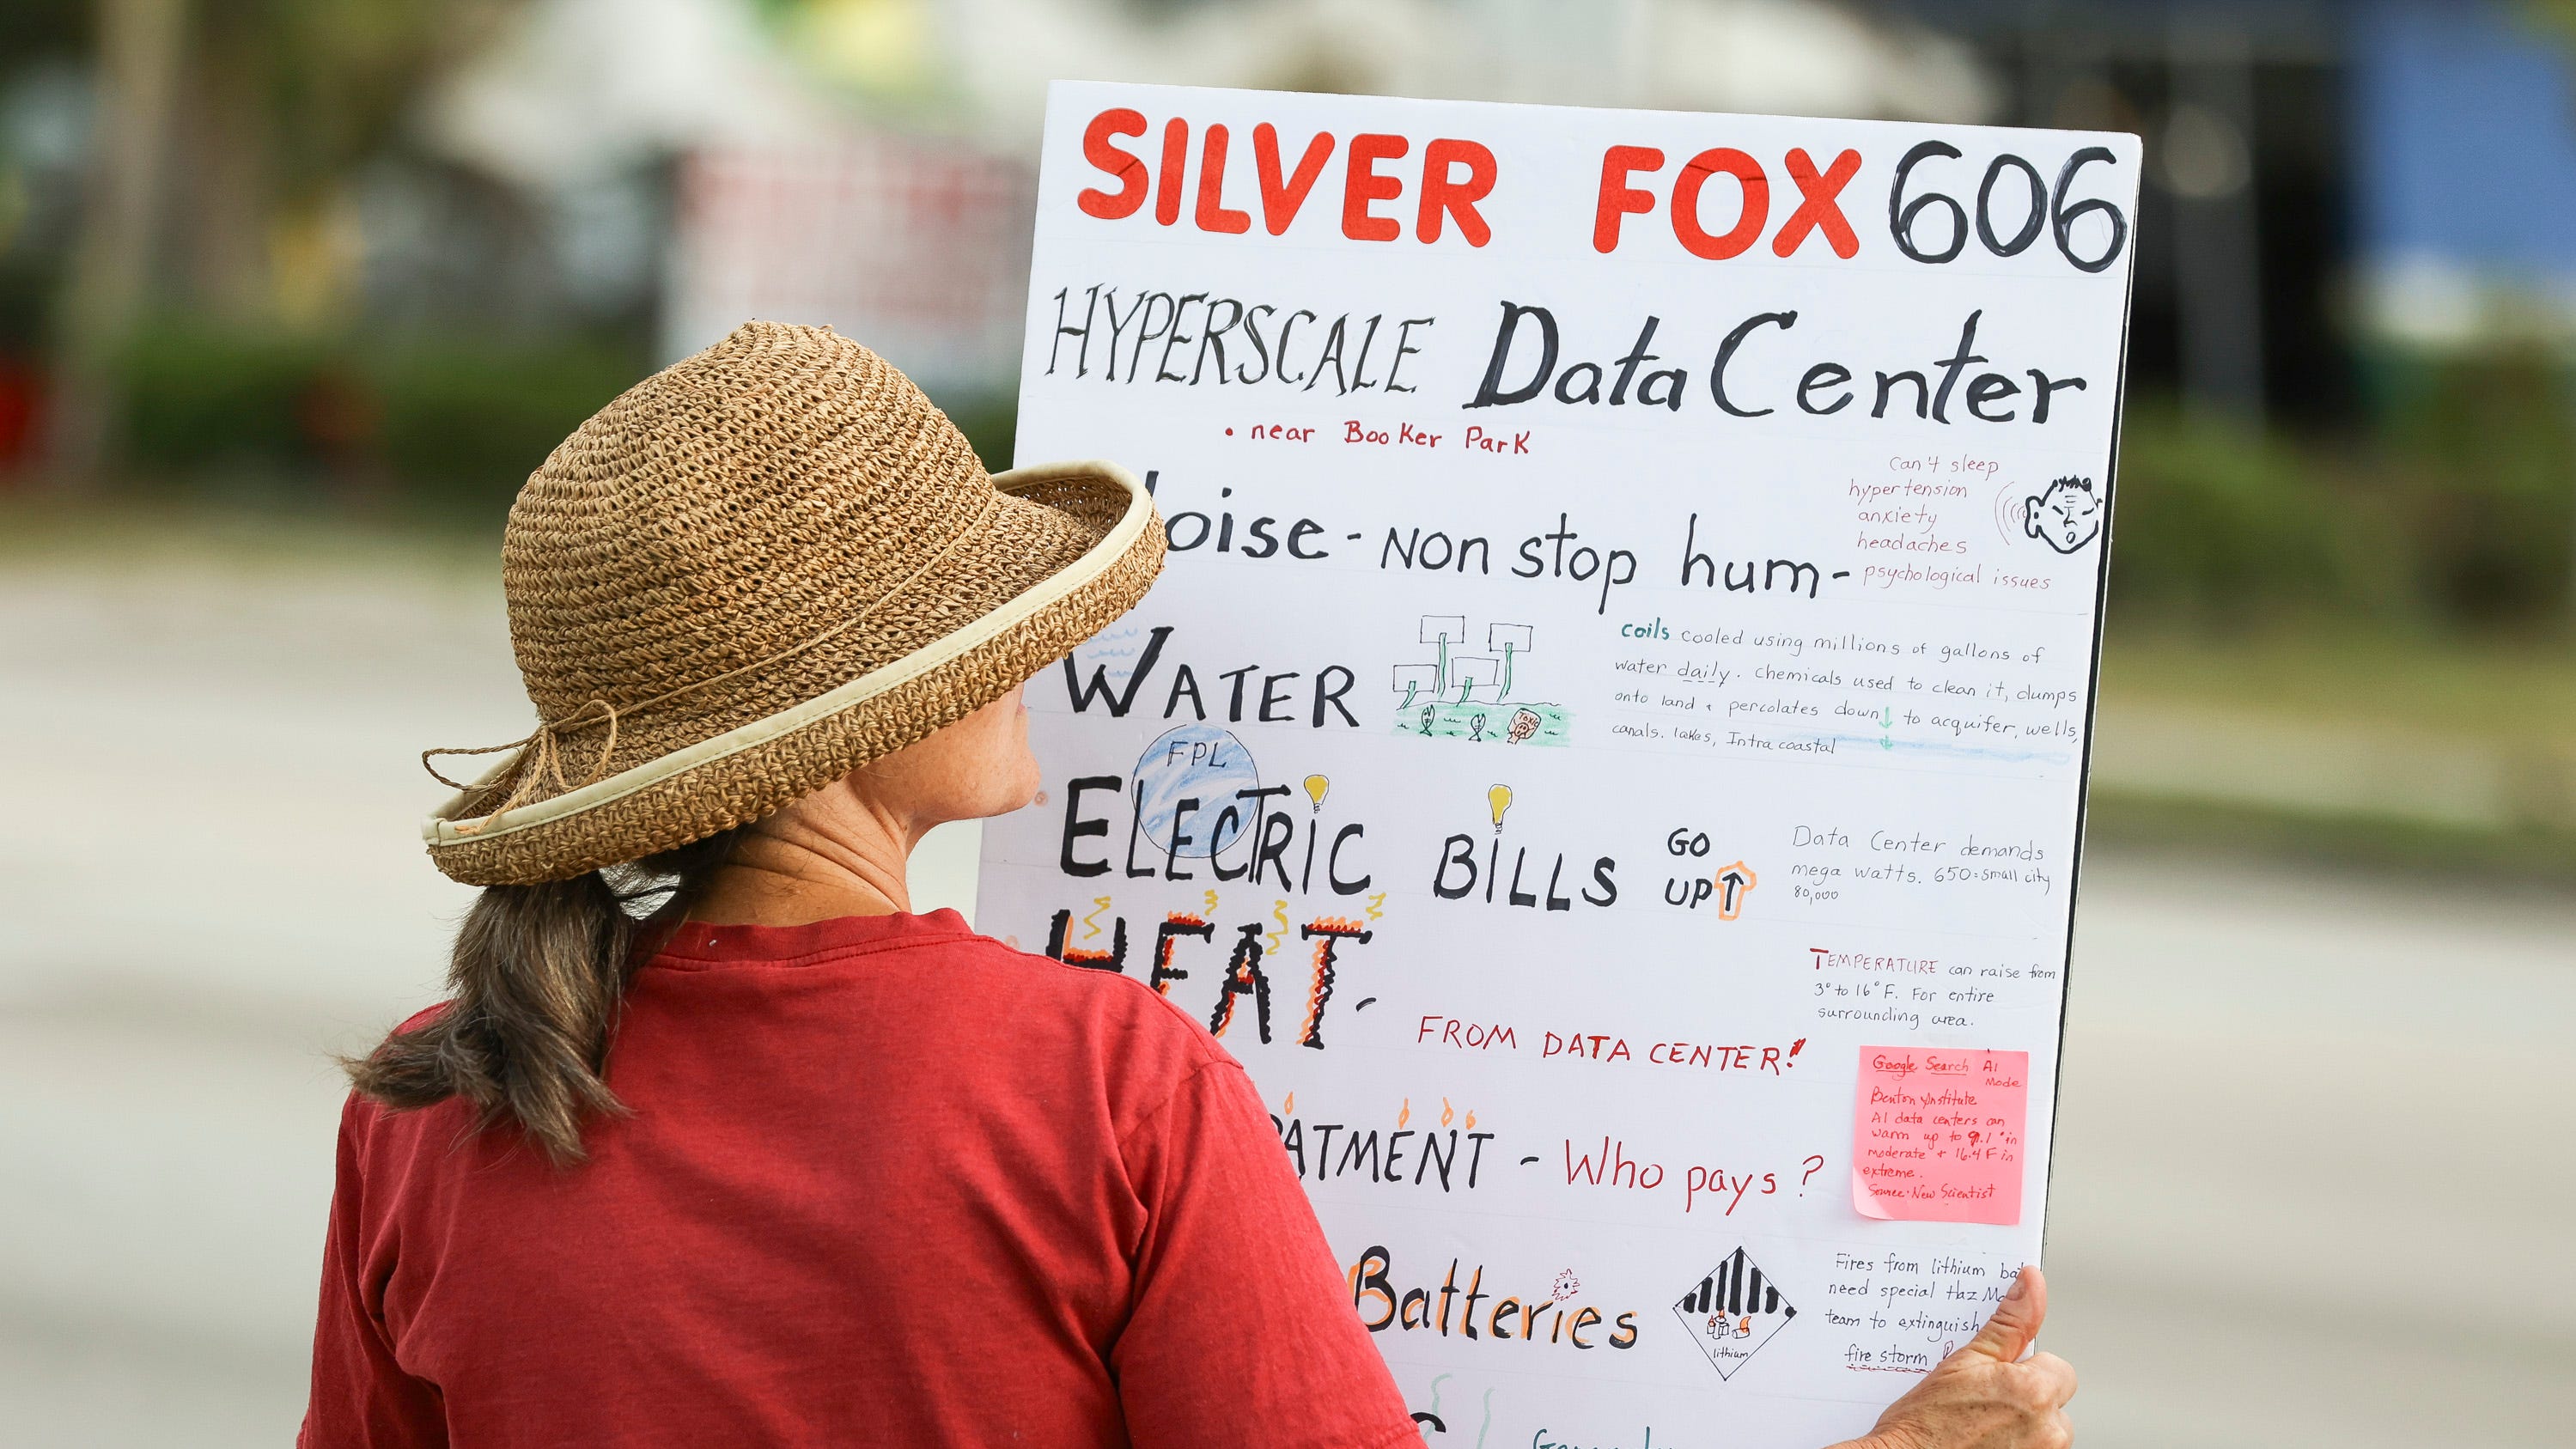 SILVER FOX 606
HYPERSCALE Data Center
• near Booker Park
oise - Non stop hum -
Can't sleep
hypertension
anxiety
headaches
psychological issues
WATER
coils cooled using millions of gallons of
water daily. chemicals used to clean it, dumps
onto land & percolates down ↓ to acquifer, wells,
canals. lakes, Intra coastal
Toxic
FPL
ELECTRIC BILLS
GO
UP ↑
Data Center demands
mega watts. 650=small city
80,000
HEAT -
FROM DATA CENTER!
TEMPERATURE can raise from
3° to 16° F. For entire
surrounding area.
Google Search AI
Mode
Benton Institute
AI data centers can
warm up to 9.1° in
moderate + 16.4 F in
extreme.
Source: New Scientist
ATMENT - Who pays?
Batteries
lithium
Fires from lithium bat
need special Haz Ma
team to extinguish
fire storm